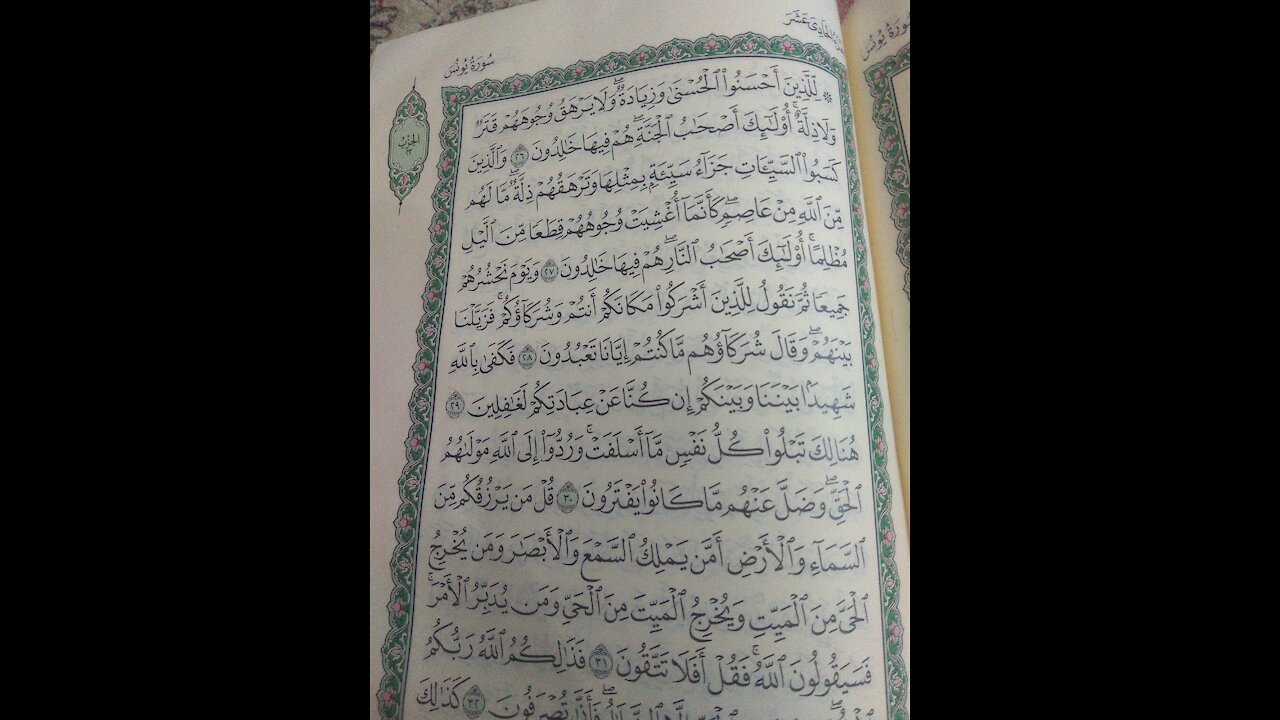 الحادى عشر
سورة يونس
سورة يونس
الحزب
۞ لِّلَّذِينَ أَحۡسَنُواْ ٱلۡحُسۡنَىٰ وَزِيَادَةٞۖ وَلَا يَرۡهَقُ وُجُوهَهُمۡ قَتَرٞ
وَلَا ذِلَّةٌۚ أُوْلَٰٓئِكَ أَصۡحَٰبُ ٱلۡجَنَّةِۖ هُمۡ فِيهَا خَٰلِدُونَ ٢٦ وَٱلَّذِينَ
كَسَبُواْ ٱلسَّيِّـَٔاتِ جَزَآءُ سَيِّئَةِۭ بِمِثۡلِهَا وَتَرۡهَقُهُمۡ ذِلَّةٞۖ مَّا لَهُم
مِّنَ ٱللَّهِ مِنۡ عَاصِمٖۖ كَأَنَّمَآ أُغۡشِيَتۡ وُجُوهُهُمۡ قِطَعٗا مِّنَ ٱلَّيۡلِ
مُظۡلِمًاۚ أُوْلَٰٓئِكَ أَصۡحَٰبُ ٱلنَّارِۖ هُمۡ فِيهَا خَٰلِدُونَ ٢٧ وَيَوۡمَ نَحۡشُرُهُمۡ
جَمِيعٗا ثُمَّ نَقُولُ لِلَّذِينَ أَشۡرَكُواْ مَكَانَكُمۡ أَنتُمۡ وَشُرَكَآؤُكُمۡۚ فَزَيَّلۡنَا
بَيۡنَهُمۡۖ وَقَالَ شُرَكَآؤُهُم مَّا كُنتُمۡ إِيَّانَا تَعۡبُدُونَ ٢٨ فَكَفَىٰ بِٱللَّهِ
شَهِيدَۢا بَيۡنَنَا وَبَيۡنَكُمۡ إِن كُنَّا عَنۡ عِبَادَتِكُمۡ لَغَٰفِلِينَ ٢٩
هُنَالِكَ تَبۡلُواْ كُلُّ نَفۡسٖ مَّآ أَسۡلَفَتۡۚ وَرُدُّوٓاْ إِلَى ٱللَّهِ مَوۡلَىٰهُمُ
ٱلۡحَقِّۖ وَضَلَّ عَنۡهُم مَّا كَانُواْ يَفۡتَرُونَ ٣٠ قُلۡ مَن يَرۡزُقُكُم مِّنَ
ٱلسَّمَآءِ وَٱلۡأَرۡضِ أَمَّن يَمۡلِكُ ٱلسَّمۡعَ وَٱلۡأَبۡصَٰرَ وَمَن يُخۡرِجُ
ٱلۡحَيَّ مِنَ ٱلۡمَيِّتِ وَيُخۡرِجُ ٱلۡمَيِّتَ مِنَ ٱلۡحَيِّ وَمَن يُدَبِّرُ ٱلۡأَمۡرَۚ
فَسَيَقُولُونَ ٱللَّهُۚ فَقُلۡ أَفَلَا تَتَّقُونَ ٣١ فَذَٰلِكُمُ ٱللَّهُ رَبُّكُمُ
إِلَّا ٱلضَّلَٰلُۖ فَأَنَّىٰ تُصۡرَفُونَ ٣٢ كَذَٰلِكَ